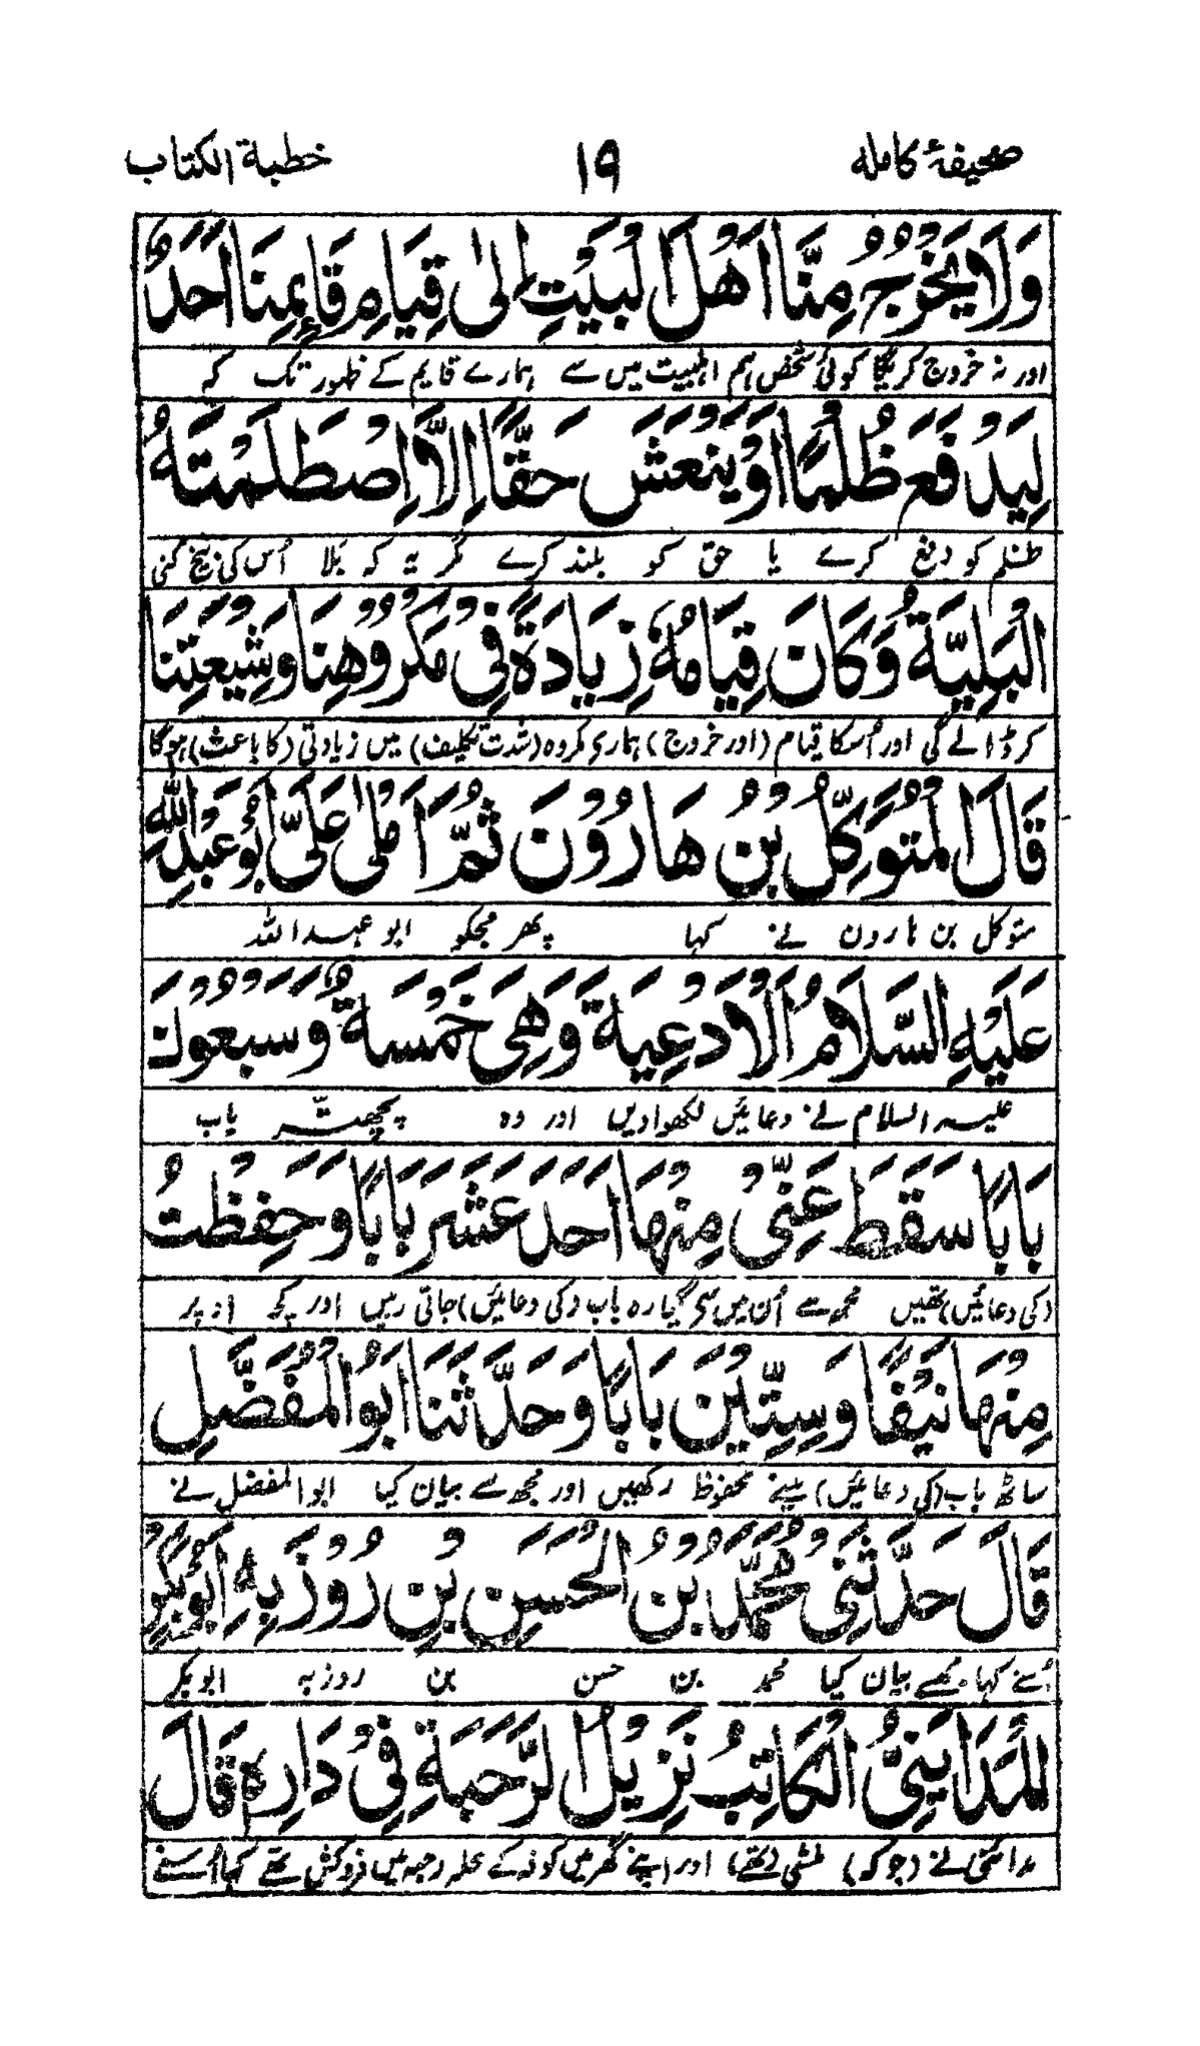 صحیفۂ کاملہ ۱۹ خطبة الکتاب
وَلَا يَخْرُجُ مِنَّا اَهْلَ الْبَيْتِ اِلٰى قِيَامِ قَائِمِنَا اَحَدٌ
اور نہ خروج کریگا کوئی شخص ہم اہلبیت میں سے ہمارے قایم کے ظہور تک کہ
لِيَدْفَعَ ظُلْمًا اَوْ يَنْعَشَ حَقًّا اِلَّا اِصْطَلَمَتْهُ
ظلم کو دفع کرے یا حق کو بلند کرے مگر یہ کہ بَلا اُس کی بیخ کنی
الْبَلِيَّةُ وَكَانَ قِيَامُهٗ زِيَادَةً فِىْ مَكْرُوْهِنَا وَشِيْعَتِنَا
کر ڈالے گی اور اُسکا قیام (اور خروج) ہماری مکروہ (شدت تکلیف) میں زیادتی (کا باعث) ہوگا
قَالَ الْمُتَوَكِّلُ بْنُ هَارُوْنَ ثُمَّ اَمْلٰى عَلَىَّ اَبُوْ عَبْدِ اللّٰهِ
متوکل بن ہارون نے کہا پھر مجکو ابو عبد اللہ
عَلَيْهِ السَّلَامُ الْاَدْعِيَةَ وَهِىَ خَمْسَةٌ وَسَبْعُوْنَ
علیہ السلام نے دعائیں لکھوا دیں اور وہ پچھتّر باب
بَابًا سَقَطَ عَنِّىْ مِنْهَا اَحَدَ عَشَرَ بَابًا وَحَفِظْتُ
(کی دعائیں) تھیں مجھ سے اُن میں سے گیارہ باب (کی دعائیں) جاتی رہیں اور کچھ اوپر
مِنْهَا نَيْفًا وَسِتِّيْنَ بَابًا وَحَدَّثَنَا اَبُو الْمُفَضَّلِ
ساٹھ باب (کی دعائیں) مینے محفوظ رکھیں اور مجھ سے بیان کیا ابو المفضل نے
قَالَ حَدَّثَنِىْ مُحَمَّدُ بْنُ الْحَسَنِ بْنِ رُوْزَبِهِ اَبُوْبَكْرٍ
اُسنے کہا مجھسے بیان کیا محمد بن حسن بن روزبہ ابو بکر
الْمَدَايِنِىُّ الْكَاتِبُ نَزِيْلُ الرَّحْبَةِ فِىْ دَارِهٖ قَالَ
مدائنی نے (جو کہ) منشی (تھے) اور اپنے گھر میں کوفہ کے محلہ رحبہ میں فروکش تھے کہا اُسنے